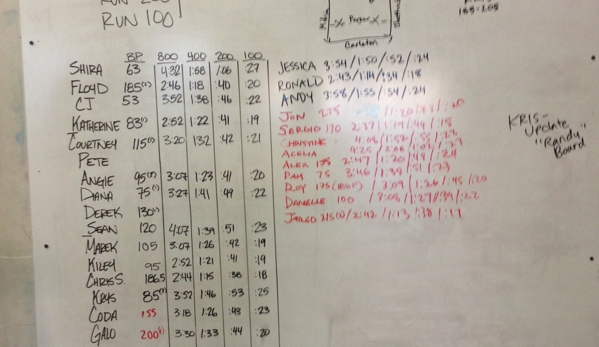 RUN 100
Parker
Carleton
185-205
BP 800 400 200 100
SHIRA 63 4:32 1:58 :06 :27
FLOYD 185(1) 2:46 1:18 :40 :20
CJ 53 3:52 1:38 :46 :22
KATHERINE 83(1) 2:52 1:22 :41 :19
COURTNEY 115(1) 3:20 1:32 :42 :21
PETE
ANGIE 95(2) 3:07 1:23 :41 :20
DIANA 75(1) 3:27 1:41 :49 :22
DEREK 130(1)
SEAN 120 4:07 1:39 51 :23
MAREK 105 3:07 1:26 :42 :19
KILEY 95 2:52 1:21 :41 :19
CHRIS S. 186.5 2:44 1:15 :38 :18
KRYS 85(1) 3:52 1:46 :53 :25
CODA 155 3:18 1:26 :43 :23
GALO 200(1) 3:30 1:33 :44 :20
JESSICA 3:54/1:50/:52/:24
RONALD 2:43/1:14/:34/:18
ANDY 3:58/1:55/:54/:24
JON 275
SERGIO 170 2:37/1:19/:44/:18
CHRISTINE
ACELIA
ALEX 135 2:47/1:20
PAM 75 3:46/1:38/:51/:23
ROY 175 3:09/1:26/:45/:20
DANIELLE 100 1:27/:39/:22
JARED 215(1)/2:42/1:13/:38/:17
KRIS-
UPDATE
"RANDY"
BOARD